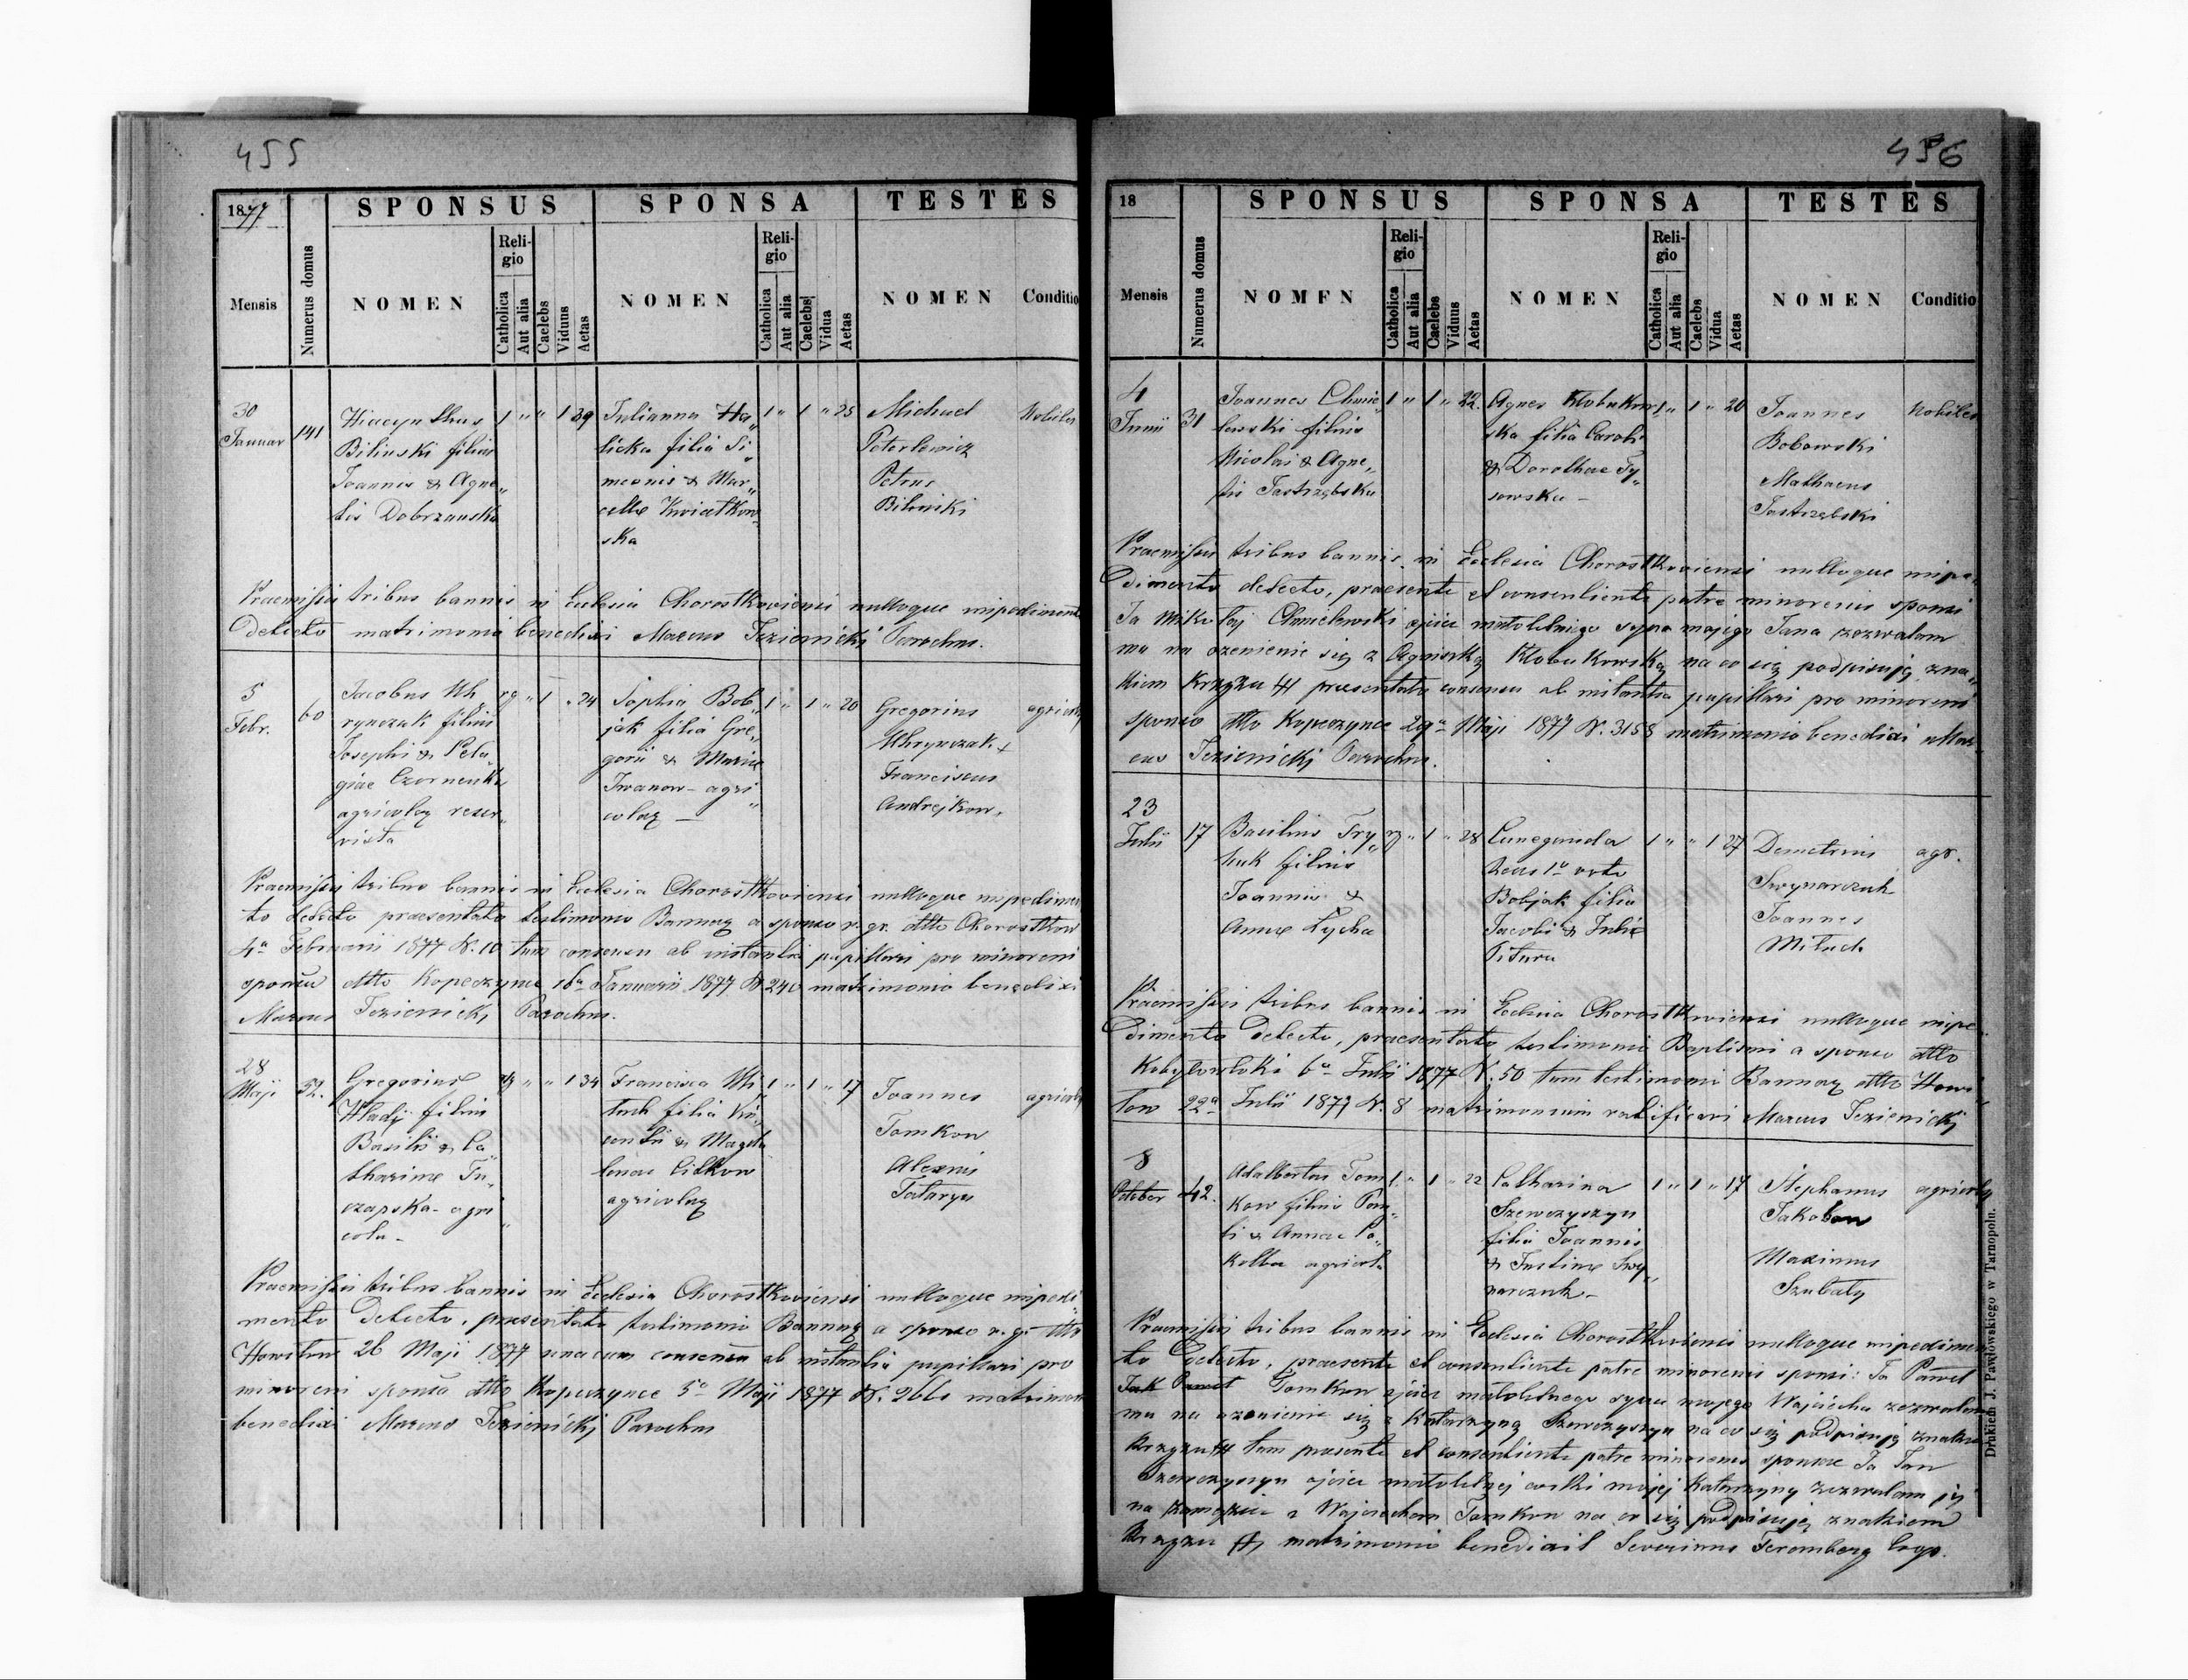 455
1877
SPONSUS SPONSA TESTES
Mensis Numerus domus NOMEN Religio Catholica Aut alia Caelebs Viduus Aetas NOMEN Religio Catholica Aut alia Caelebs Vidua Aetas NOMEN Conditio
30 Januar 141
Hiacynthus
Bilinski filius
Joannis & Agne„
tis Dobrzanska
1 „ „ 1 29
Julianna Ha„
licka filia Si„
meonis & Mar„
cellae Kwiatkow„
ska
1 „ 1 „ 25
Michael
Peterlewicz
Petrus
Bilinski
Nobiles
Praemissis tribus bannis in Ecclesia Chorostkoviensi nulloque impedimento
detecto matrimonio benedixi Marcus Jezienickj Parochus.
5 Febr. 60
Jacobus Uh
rynczak filius
Josephi & Pela„
giae Czornenka
agricolaz reser„
vista
rg „ 1 „ 24
Sophia Bob„
jak filia Gre„
gorii & Mariae
Iwanow - agri„
colaz —
1 „ 1 „ 20
Gregorius
Uhrynczak +
Franciscus
Andrejkow.
Praemissis tribus bannis in Ecclesia Chorostkoviensi nulloque impedimen
to detecto praesentato testimonio Bannorz a sponso r. gr. dtto Chorostkow
4a Februarii 1877 N. 10 tum consensu ab instantia pupillari pro minoreni
sponsa dtto Kopeczynce 16a Januarii 1877 N 240 matrimonio benedixi
Marcus Jezienickj Parochus.
28 Maji 52.
Gregorius
Hladij filius
Basilii & Ca„
tharinae Tu„
czapska - agri„
cola -
rg „ „ 1 34
Francisca Mi„
tuch filia Vin„
centii & Magda
lenae Cidkow
agricolaz
1 „ 1 „ 17
Joannes
Tomkow
Alexius
Tataryn
Praemissis tribus bannis in Ecclesia Chorostkoviensi nulloque impedi„
mento detecto, praesentato testimonio Bannorz a sponso r. g. dtto
Howilow 26 Maji 1877 una cum consensu ab instantia pupillari pro
minoreni sponsa dtto Kopeczynce 5a Maji 1877 N. matrimon
benedixi Marcus Jezienickj Parochus
456
18
SPONSUS SPONSA TESTES
Mensis Numerus domus NOMEN Religio Catholica Aut alia Caelebs Viduus Aetas NOMEN Religio Catholica Aut alia Caelebs Vidua Aetas NOMEN Conditio
4 Junii 31
Joannes Chmie„
lewski filius
Nicolai & Agne„
tis Jastrzębska
1 „ 1 „ 22.
Agnes Kłobukow
ska filia Caroli
& Dorotheae Ty„
sowska -
1 „ 1 „ 20
Joannes
Bobowski
Mathaeus
Jastrzębski
Nobiles
Praemissis tribus bannis in Ecclesia Chorostkoviensi nulloque impe„
dimento detecto, praesente et consentiente patre minorenis sponsi
Ja Mikołaj Chmielewski ojciec małoletniego syna mojego Jana zezwalam
mu na ożenienie się z Agnieszką Kłobukowską na co się podpisuję zna„
kiem krzyża praesentato consensu ab instantia pupillari pro minoreni
sponso dtto Kopeczynce 29a Maji 1877 N. 3158 matrimonio benedixi Mar„
cus Jezienickj Parochus.
23 Julii 17
Basilius Try„
huk filius
Joannis &
Annae Łycha
rg „ 1 „ 28
Cunegunda
1o voto
Bobjak filia
Jacobi & Juliae
Pitura
1 „ „ 1 27
Demetrius
Swynarczuk
Joannes
Mituch
agr.
Praemissis tribus bannis in Ecclesia Chorostkoviensi nulloque impe„
dimento detecto, praesentato testimonio Baptismi a sponso dtto
Kobyłowłoki 6a Julii 1877 N. 50 tum testimonio Bannorz dtto Howi„
low 22a Julii 1877 N. 8 matrimonium ratificavi Marcus Jezienickj
8 October 42.
Adalbertus Tom
kow filius Pau„
li & Annae Po„
kolba agricol.
1 „ 1 „ 22
Catharina
Szewczyszyn
filia Joannis
& Justinae Swy„
narczuk -
1 „ 1 „ 17
Stephanus
Jakobow
Maximus
Szubaty
Praemissis tribus bannis in Ecclesia Chorostkoviensi nulloque impedimen
to detecto, praesente et consentiente patre minorenis sponsi: Ja Paweł
Tomkow ojciec małoletnego syna mojego Wojciecha zezwalam
mu na ożenienie się z Katarzyną Szewczyszyn na co się podpisuję znakiem
krzyża tum praesente et consentiente patre minorenis sponsae Ja Jan
Szewczyszyn ojciec małoletnej córki mojej Katarzyny zezwalam jej
na zamążcie z Wojciechem Tomkow na co się podpisuję znakiem
krzyża matrimonio benedixit Severinus Feremberg Coop.
Drukiem J. Pawłowskiego w Tarnopolu.